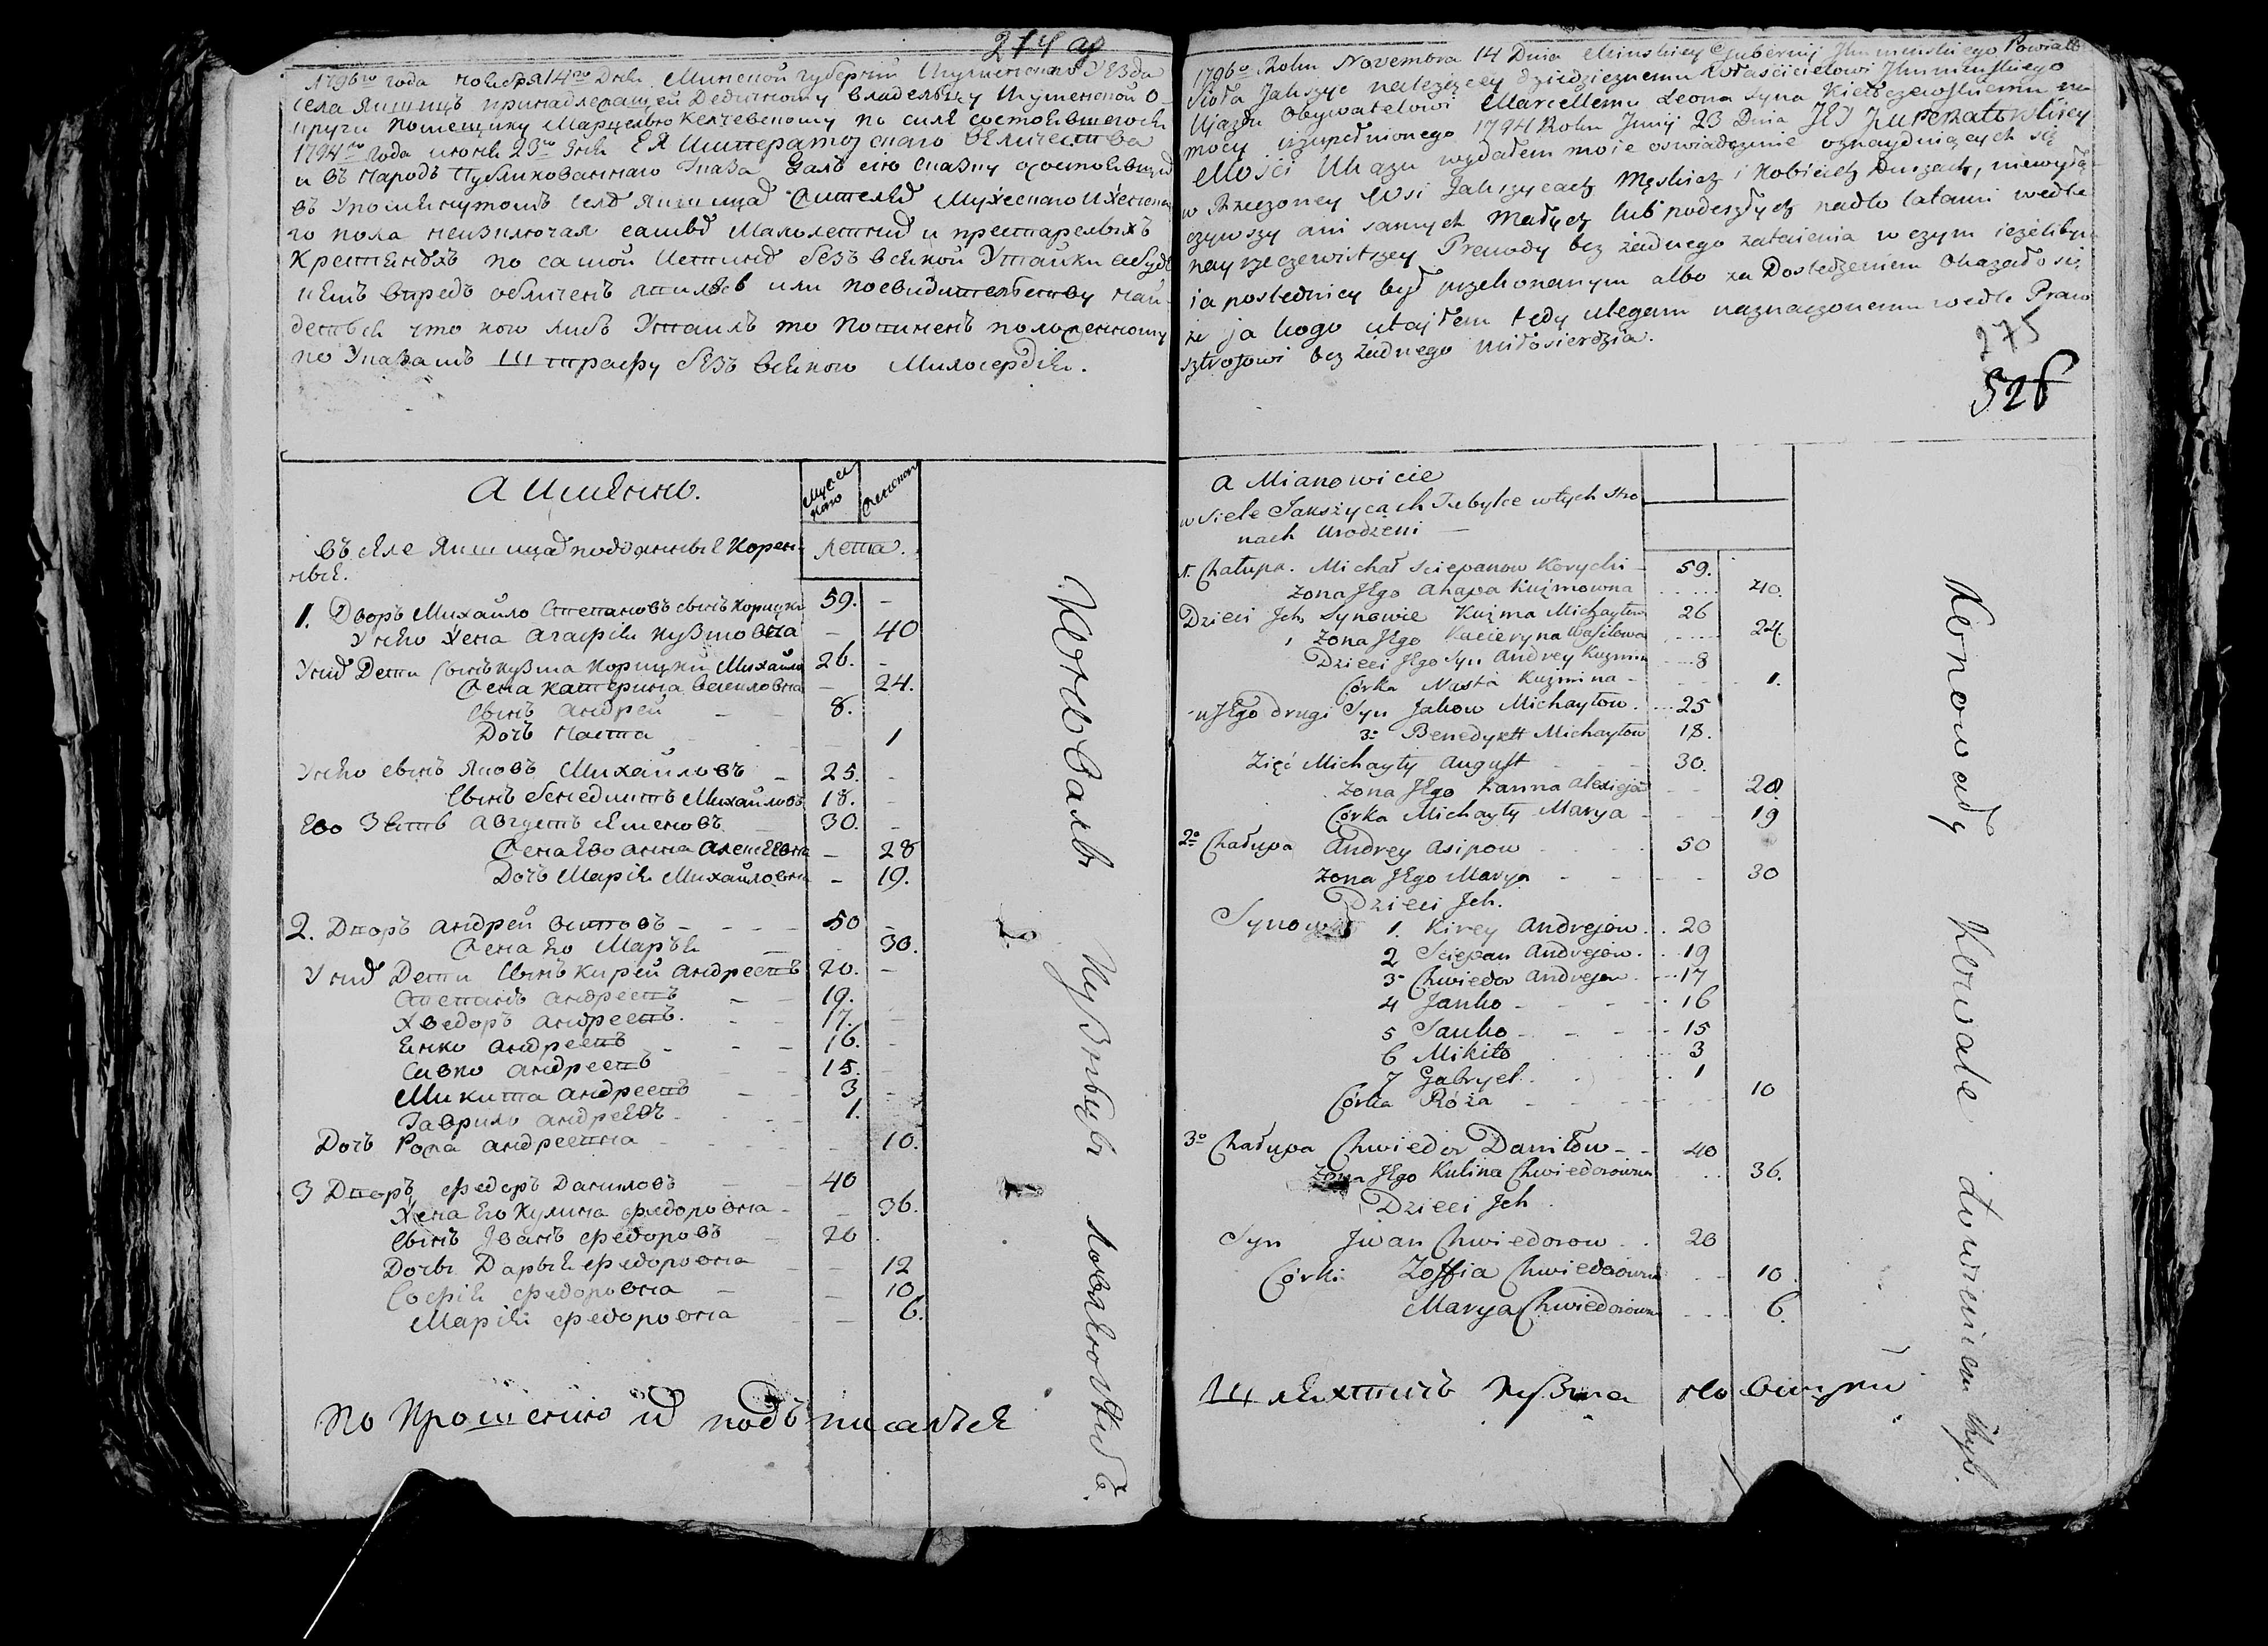 274 об
1796го года ноября 14го Дня Минской губернии Игуменского уезда
села Якшицъ принадлежащей Дедичному владельцу Игуменской о-
круги помещику Марцелью Келчевскому по силе состоявшегося
1794го года июня 23го дня Ея Императорскаго Величества
и въ народъ Публикованнаго Указа Далъ сию сказку о состоящих
въ упомянутомъ селе Якшицах жителях мужескаго и женска
го пола неизключая самых малолетних и престарелыхъ
крестьянахъ по самой истинне безъ всякой Утайки а буде
впредь обличенъ или по свидетельству най-
детъся что кого либъ Утаилъ то повиненъ положенному
по Указамъ Штрафу безъ всякого Милосердія.
А имянно.
мужска
го
женскаго
въ селе Якшицах подданные корен-
ные.
Лета.
1. Дворъ Михайло Степановъ сынъ Корицки 59. -
У него жена Агафия Кузмовна - 40
У них Дети сынъ Кузма Корицки Михайло 26. -
Жена Катерина Василовна - 24.
Сынъ Андрей - - 8.
Дочь Наста 1
У него сынъ Яковъ Михайловъ - 25. -
Сынъ Бенедиктъ Михайловъ 18. -
Ево Зять Августъ 30. -
Жена Ево Анна Алексеевна - 28
Дочь Марія Михайловна - 19.
2. Дворъ Андрей Осиповъ - - - - 50 -
Жена Ево Марья - 30.
У них Дети Сынъ Кирей Андреевъ 20. -
Степанъ Андреевъ - - 19.
Хведоръ Андреевъ. - - 17. -
Янко Андреевъ - - - 16. -
Савко Андреевъ - - 15.
Микита Андреевъ - - 3 -
Гаврило Андреевъ - - - 1.
Дочь Рожа Андреевна - - 10.
3 Дворъ Федоръ Даниловъ - - 40
Жена Его Кулина Федоровна - - 36.
Сынъ Іванъ Федоровъ - 20 .
Дочь Дарья Федоровна - - 12
Софія Федоровна - - 10
Марія Федоровна - - 6.
По Прошению их подъписался
Коновалы Кузнецы
1796o Roku Novembra 14 Dnia Minskiey Gubernij Jhumenskiego Powiatu
Sioła Jakszyc należącey dziedzicznemu Właścicielowi Jhumenskiego
Ujazdu Obywatelowi Marcellemu Leona Syna Kiełczewskiemu na
mocy 1794 Roku Junij 23 Dnia JEJ Jmperatorskiey
Mości Ukazu wydałem moie oswiadczenie oznayduiących się
w Rzeczoney Wsi Jakszycach Męskich i Kobiecych Duszach, niewyłą
czywszy ani samych Małych lub podeszłych nadto latami wedle
nayrzeczewistszey Prawdy bez żadnego zataienia w czym ieżelibym
ia poslednicy był przekonanym albo za Dosledzeniem Okazało się
że ja kogo utajłem tedy ulegam naznaczonemu wedle Praw
sztrofowi bez żadnego miłosierdzia.
275
528
a Mianowicie
w Siele Jakszycach Tubylce w tych stro
nach Urodzeni -
1. Chałupa. Michał Sciepanow Korycki - 59.
Żona Jego Ahapa Kuźmowna 40.
Dzieci Jch Synowie Kuźma Michayłow 26
Żona Jego Kacieryna Wasilowa 24.
Dzieci Jego Syn Andrey Kuzmin 8
Córka Nasta Kuźmina - 1.
u Jego drugi Syn Jakow Michayłow 25
3o Benedykt Michayłow 18.
Zięć Michayły August 30.
Żona Jego Hanna Alexieja 28
Córka Michayły Marya - 19
2o Chałupa Andrey Asipow 50
Żona Jego Marya - - - - 30
Dzieci Jch.
Synowie 1. Kirey Andrejow. 20
2 Sciepan Andrejow. 19
3o Chwiedor Andrejow 17
4 Janko - - - 16
5 Sauko - - - 15
6 Mikita 3
7 Gabryel. 1
Córka Róża 10
3o Chałupa Chwiedor Daniłow - - 40
Żona Jego Kulina Chwiedorowna 36.
Dzieci Jch
Syn Jwan Chwiedorow 20
Córki Zoffia Chwiedorowna 10.
Marya Chwiedorowna 6.
Шляхтичъ Кузма
Konowały Kowale